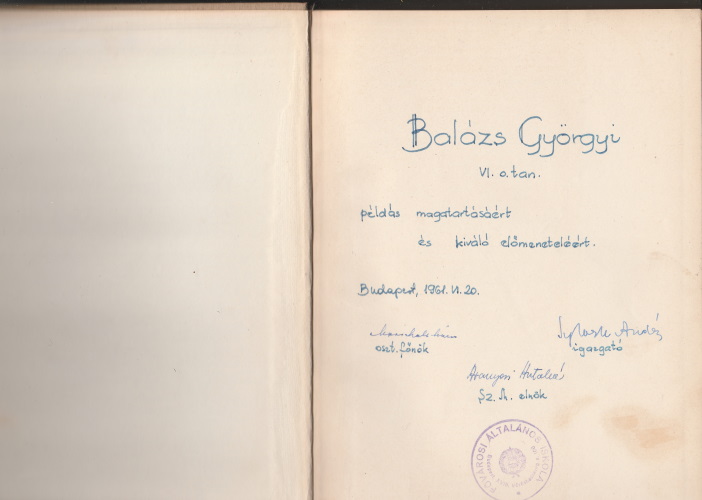 Balázs Györgyi
VI. o. tan.
példás magatartásáért
és kiváló előmeneteléért.
Budapest, 1961. VI. 20.
oszt. főnök
igazgató
Sz. M. elnök
FŐVÁROSI ÁLTALÁNOS ISKOLA